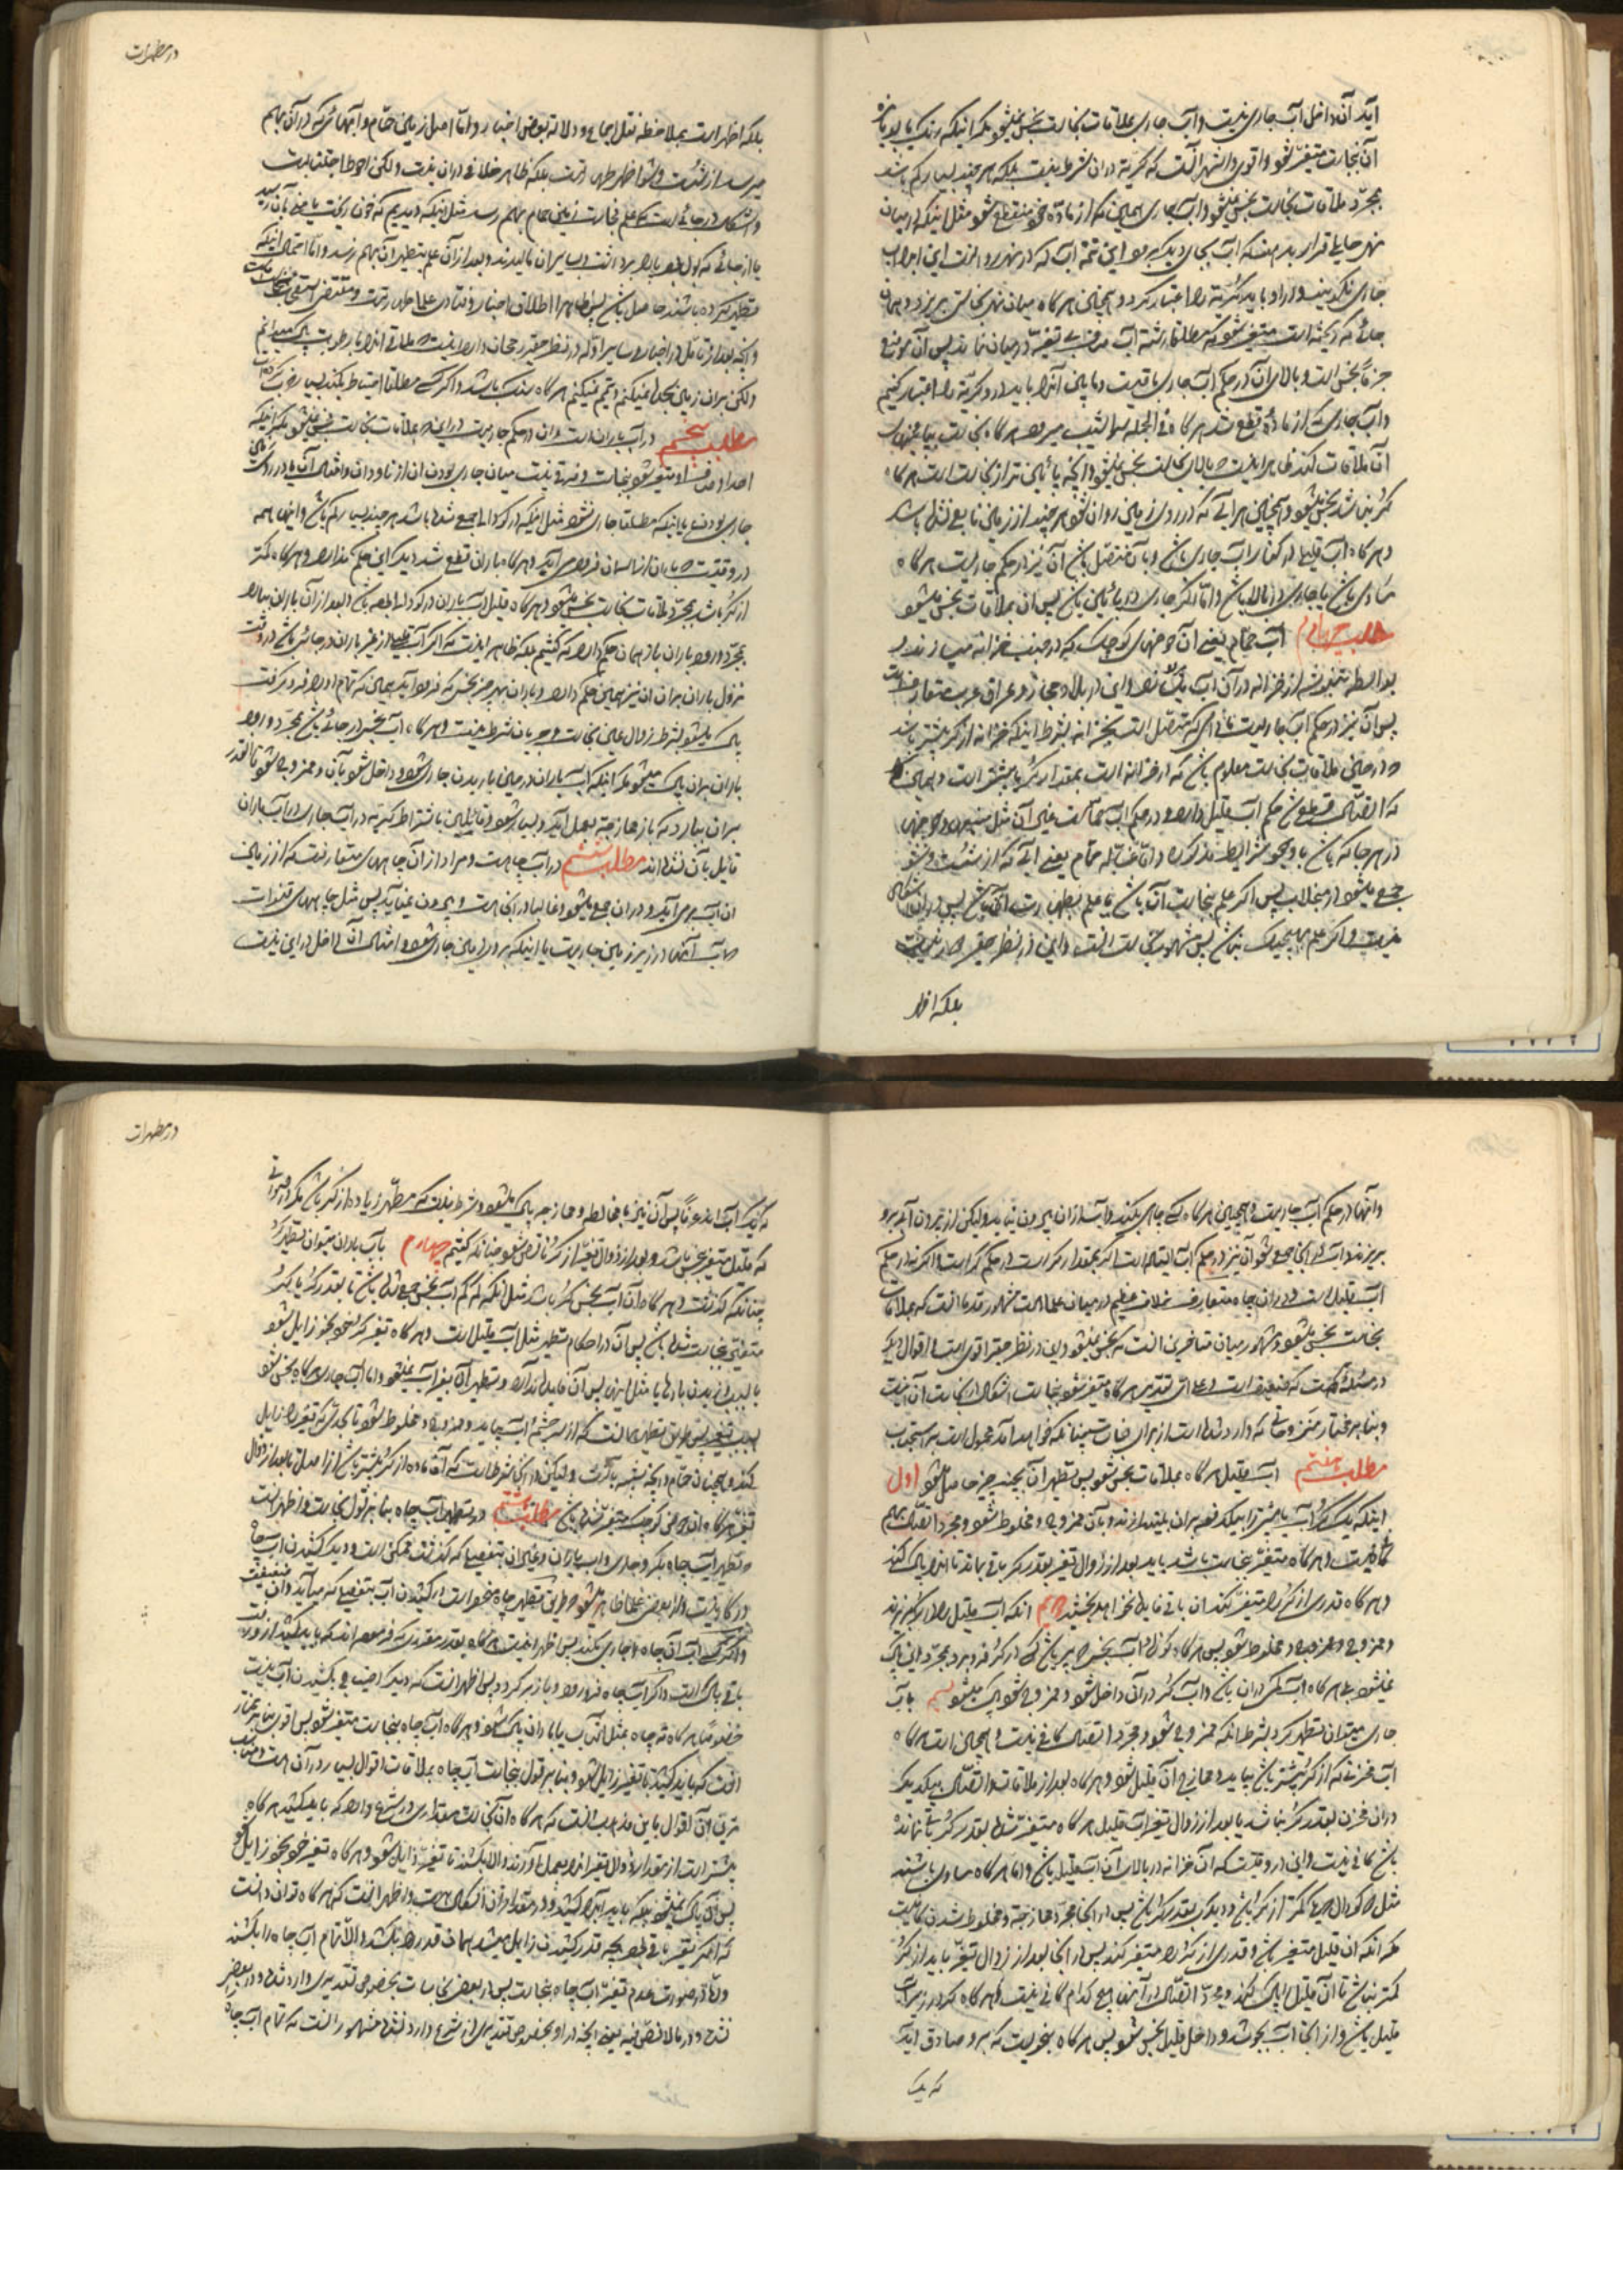 آید آن داخل آب جاری نیست و آب جاری بملاقات نجاست نجس نمیشود مگر اینکه رنگ یا بو یا مزه
آن بنجاست متغیر شود و اقوی و اشهر آنست که کریّة در آن شرط نیست بلکه هر چند بسیار کم باشد
بمجرّد ملاقات نجاست نجس نمیشود و آب جاری همین که از مادّه خود منقطع شود مثل اینکه در میان
نهر حایلی قرار بدهند که آب بجای دیگر برود این تتمه آب که در نهر روانست این را آب
جاری نگویند و در او باید کریّة را اعتبار کرد و همچنین هرگاه میان نهر نجاستی بریزد و همان
جائی که ریخته است متغیر شود که مطلقا رشته آب صاف بی تغیّر در میان نماند پس آن موضع
جزماً نجس است و بالای آن در حکم آب جاری باقیست و پایین آنرا باید در او کریّة را اعتبار کنیم
و آب جاری که از مادّه قطع شد هرگاه فی الجمله سراشیب میرود هرگاه نجاست بپایین
آن ملاقات کند ظاهر اینست که بالای نجاست نجس نمیشود و آنچه پائین تر از نجاست است هرگاه
کر نباشد نجس میشود و همچنین هر آبی که در روی زمین روان شود هر چند از زمین نابع نشده باشد
و هرگاه آب قلیلی در کنار آب جاری باشد و بآن متصل باشد آن نیز در حکم جاریست هرگاه
مساوی باشد یا جاری در بالا باشد و امّا اگر جاری در پائین باشد پس آن بملاقات نجس میشود
مطلب چهارم آب حمّام یعنی آن حوضهای کوچک که در جنب خزانه میسازند و
بواسطه تنبوشه از خزانه در آن آب
پس آن نیز در حکم آب جاریست مادامی که متصل است بخزانه بشرط اینکه خزانه از کر بیشتر باشد
و در حین ملاقات نجاست معلوم باشد که در خزانه است بمقدار کر یا بیشتر است و همین که
که اتصال مقطوع شد حکم آب قلیل دارد و در حکم آب حمّامست غیر آن مثل و حوضهای
در هر جا که باشد با وجود شرایط مذکوره و امّا غسّاله حمّام یعنی آبی که از شست و شو
جمع میشود در منجلاب پس اگر علم بنجاست آن باشد یا علم بطهارت آن باشد پس در آن اشکالی
نیست و اگر علم بهیچیک نباشد پس مشهور نجاست است و این در نظر حقیر
بلکه اظهر
در مطهرات
بلکه اظهر است بملاحظه نقل اجماع و دلالة بعض اخبار و امّا اصل زمین حمّام و آبهائی که در آن بهم
میرسد از شست و شو اظهر طهارتست بلکه ظاهر خلافی در آن نیست ولکن احوط اجتنابست
و اشکال در جائیست که علم نجاست زمین حمام بهم رسد مثل اینکه دیدیم که خون ریخت یا منی بآن رسید
تطهیر کرده باشند حاصل باشد پس ظاهرا اطلاق اخبار و فتاوی علما طهارتست
و آنچه بعد از تأمل در اخبار و سایر ادلّه در نظر حقیر رجحان دارد اینست که ملاقی آنرا با رطوبت پاک میدانم
ولکن بر آن زمین سجده نمیکنم و تیمّم نمیکنم هرگاه باشد و اگر کسی مطلقا احتیاط بکند بسیار خوبست
مطلب پنجم در آب بارانست و آن در حکم جاریست در اینکه بملاقات نجاست نجس نمیشود مگر اینکه
احد اوصاف او متغیر شود بنجاست و فرقی نیست میان جاری بودن آن از ناودان و امثال آن یا در روی زمین
جاری بودن یا اینکه مطلقا جاری نشود مثل اینکه در گودالی جمع شده باشد هر چند بسیار کم باشد و اینها همه
در وقتیست که باران از آسمان فرود می آید و هرگاه باران قطع شد دیگر این حکم ندارد و هرگاه کمتر
از کر باشد بمجرّد ملاقات نجاست نجس میشود و هرگاه قلیل آب باران در گودالی باشد و بعد از آن باران ببارد
بمجرّد ورود باران باز همان حکم دارد که گفتیم بلکه ظاهر اینست که اگر آب قلیلی از غیر باران در جائی باشد در وقت
نزول باران بر آن آن نیز همین حکم دارد و باران بهر چیز نجس که فرود آید همین که تمام او را فرو گرفت
پاک میشود بشرط زوال عین نجاست و جریان شرط نیست و هرگاه آب نجس در جائی باشد بمجرّد ورود
باران بر آن پاک نمیشود مگر اینکه آب باران در حین باریدن جاری شود و داخل شود بآن و ممزوج شود یا آنقدر
بر آن ببارد که باز ممازجة بعمل آید و بسیار شود و قائلین باشتراط کریّة در آب جاری در آب باران
قایل بآن نشده اند مطلب ششم در آب چاهست و مراد از آن چاههای متعارفست که از زمین
آن آب بر می آید و در آن جمع میشود و غالبا در آنجاست و بیرون نمیآید پس مثل چاههای قنوات
که آب آنها در زیر زمین جاریست یا اینکه بر روی زمین جاری شود و امثال آن داخل در این نیست
و آنها در حکم آب جاریست و همچنین هرگاه کسی چاهی بکند و آب از آن بیرون نیاید ولیکن از بیرون آب بر او
بریزند و آب در آنجا جمع شود آن نیز در حکم آب ایستاده است اگر بمقدار کر است در حکم کر است و اگر نه در حکم
آب قلیل است و در آب چاه متعارف خلاف عظیم در میان علماست مشهور قدما آنست که بملاقات
نجاست نجس میشود و مشهور میان متاخرین آنست که نجس نمیشود و این در نظر حقیر اقوی است و اقوال دیگر
در مسئله هست که ضعیف است و علی ای تقدیر هرگاه متغیر شود بنجاست اشکال در نجاست آن نیست
و بنا بر مختار نزحی که وارد شده است از برای نجاسات چنانکه خواهد آمد محمول است بر استحباب
مطلب هفتم آب قلیل هرگاه بملاقات نجس شود پس تطهیر آن بچند چیز حاصل میشود اول
اینکه یک کر آب یا بیشتر را بیکدفعه بر آن بیندازند و بآن ممزوج و مخلوط شود و مجرّد اتصال بهم
کافی نیست و هرگاه متغیّر بنجاست باشد باید بعد از زوال تغیّر بقدر کر باقی بماند تا آنرا پاک کند
و هرگاه قدری از کر را متغیّر کند آن باقی فایده نخواهد بخشید دویم آنکه آب قلیل را در کر بریزند
و ممزوج و مخلوط شود پس هرگاه کوزه آب نجس پر باشد که در کر فرو برد بمجرّد این پاک
نمیشود بلی هرگاه آب کمی در آن باشد و آب کر در آن داخل شود و ممزوج شود پاک میشود سیّم بآب
جاری میتوان تطهیر کرد بشرط آنکه ممزوج شود و مجرّد اتصال کافی نیست و همچنین است هرگاه
آب مخزنی که از کر بیشتر باشد بیاید و ممازج آن قلیل شود و هرگاه بعد از ملاقات و اتصال بیکدیگر
در آن مخزن بقدر کر نباشد یا بعد از زوال تغیر آب قلیل هرگاه متغیّر شده بقدر کر باقی نمانده
باشد کافی نیست و این در وقتیست که آن خزانه در بالای آن آب قلیل باشد و اما هرگاه مساوی باشند
مثل دو گودال یکی کمتر از کر باشد و دیگری بقدر کر باشد پس در اینجا مجرّد ممازجة و مخلوط شدن کافیست
مگر آنکه آن قلیل متغیر باشد و قدری از کر را متغیر کند پس در اینجا بعد از زوال تغیّر باید از کر
کمتر نباشد تا آن قلیل را پاک کند و مجرّد اتصال در آنها هیچ کدام کافی نیست و هرگاه کر در زیر آب
قلیل باشد و از آنجا آب بجوشد و داخل قلیل نجس شود پس هرگاه بنحویست که بر او صادق آید
که یک
در مطهرات
که یک آب اند عرفاً پس آن نیز با مخالطه و ممازجه پاک میشود و شرط نیست که مطهّر زیاده از کر باشد مگر در صورتی
که قلیل متغیر نجس باشد و بعد از زوال تغیّر از کر ناقص شود چنانکه گفتیم چهارم بآب باران میتوان تطهیر کرد
چنانکه گذشت و هرگاه آن آب نجس کر باشد مثل آنکه کم کم آب نجس جمع شده باشد تا بقدر کر یا کر
متغیر بنجاست شده باشد پس آن در احکام تطهیر مثل آب قلیل است و هرگاه تغیر کر خود بخود زایل شود
یا بسبب وزیدن بادها یا مثل اینها پس آن فایده ندارد و تطهیر آن بغیر آب نمیشود و اما آب جاری هرگاه نجس شود
بسبب تغییر پس طریق تطهیر همانست که از سرچشمه آب بیاید و ممزوج و مخلوط شود تا بحدی که تغیّر را زایل
کند و همچنان حمّام و آنچه شبیه بآنست ولیکن در آنجا شرطست که آن ماده از کر بیشتر باشد از اصل یا بعد از زوال
تغیّر هرگاه آن حوض کوچک متغیر شده باشد مطلب هشتم در تطهیر آب چاه بنا بر قول نجاست و اظهر آنست
که تطهیر آب چاه بکر و جاری و آب باران و غیر آن بتفصیلی که گذشت ممکن است و دیگر کشیدن آب چاه
در کار نیست و از بعضی علما ظاهر میشود که طریق تطهیر چاه منحصر است در کشیدن آب بتفصیلی که میآید و آن ضعیفست
باقی پاک است و اگر آب چاه فرو رود و باز برگردد پس اظهر آنست که دیگر احتیاج بکشیدن آب نیست
خصوصاً هرگاه ته چاه بمثل آفتاب یا باران پاک شود و هرگاه آب چاه بنجاست متغیر شود پس اقوی بنا بر مختار
آنست که باید کشید تا تغیّر زایل شود و بنا بر قول بنجاست آب چاه بملاقات اقوال بسیار در آن هست و
ترین آن اقوال باین مذهب آنست که هرگاه آن نجاست مقداری در شرع دارد که باید کشید هرگاه
بیشتر است از مقدار زوال تغیر آنرا بعمل آورند و الّا بکشند تا تغیّر زایل شود و هرگاه تغیر خود بخود زایل شود
پس آن پاک نمیشود بلکه باید آبرا کشید و در مقدار آن اشکال هست و اظهر آنست که هرگاه توان دانست
که اگر تغیر باقی بود بچه قدر کشیدن زایل میشد همان قدر را بکشند و الّا تمام آب چاه را بکشند
و امّا در صورت عدم تغیّر آب چاه بنجاست پس در بعض نجاسات بخصوص تقدیری وارد شده و در بعض
نشده و در ما لا نصّ فیه یعنی آنچه در او بخصوص تقدیری از شرع وارد نشده مشهور آنست که تمام آب چاه